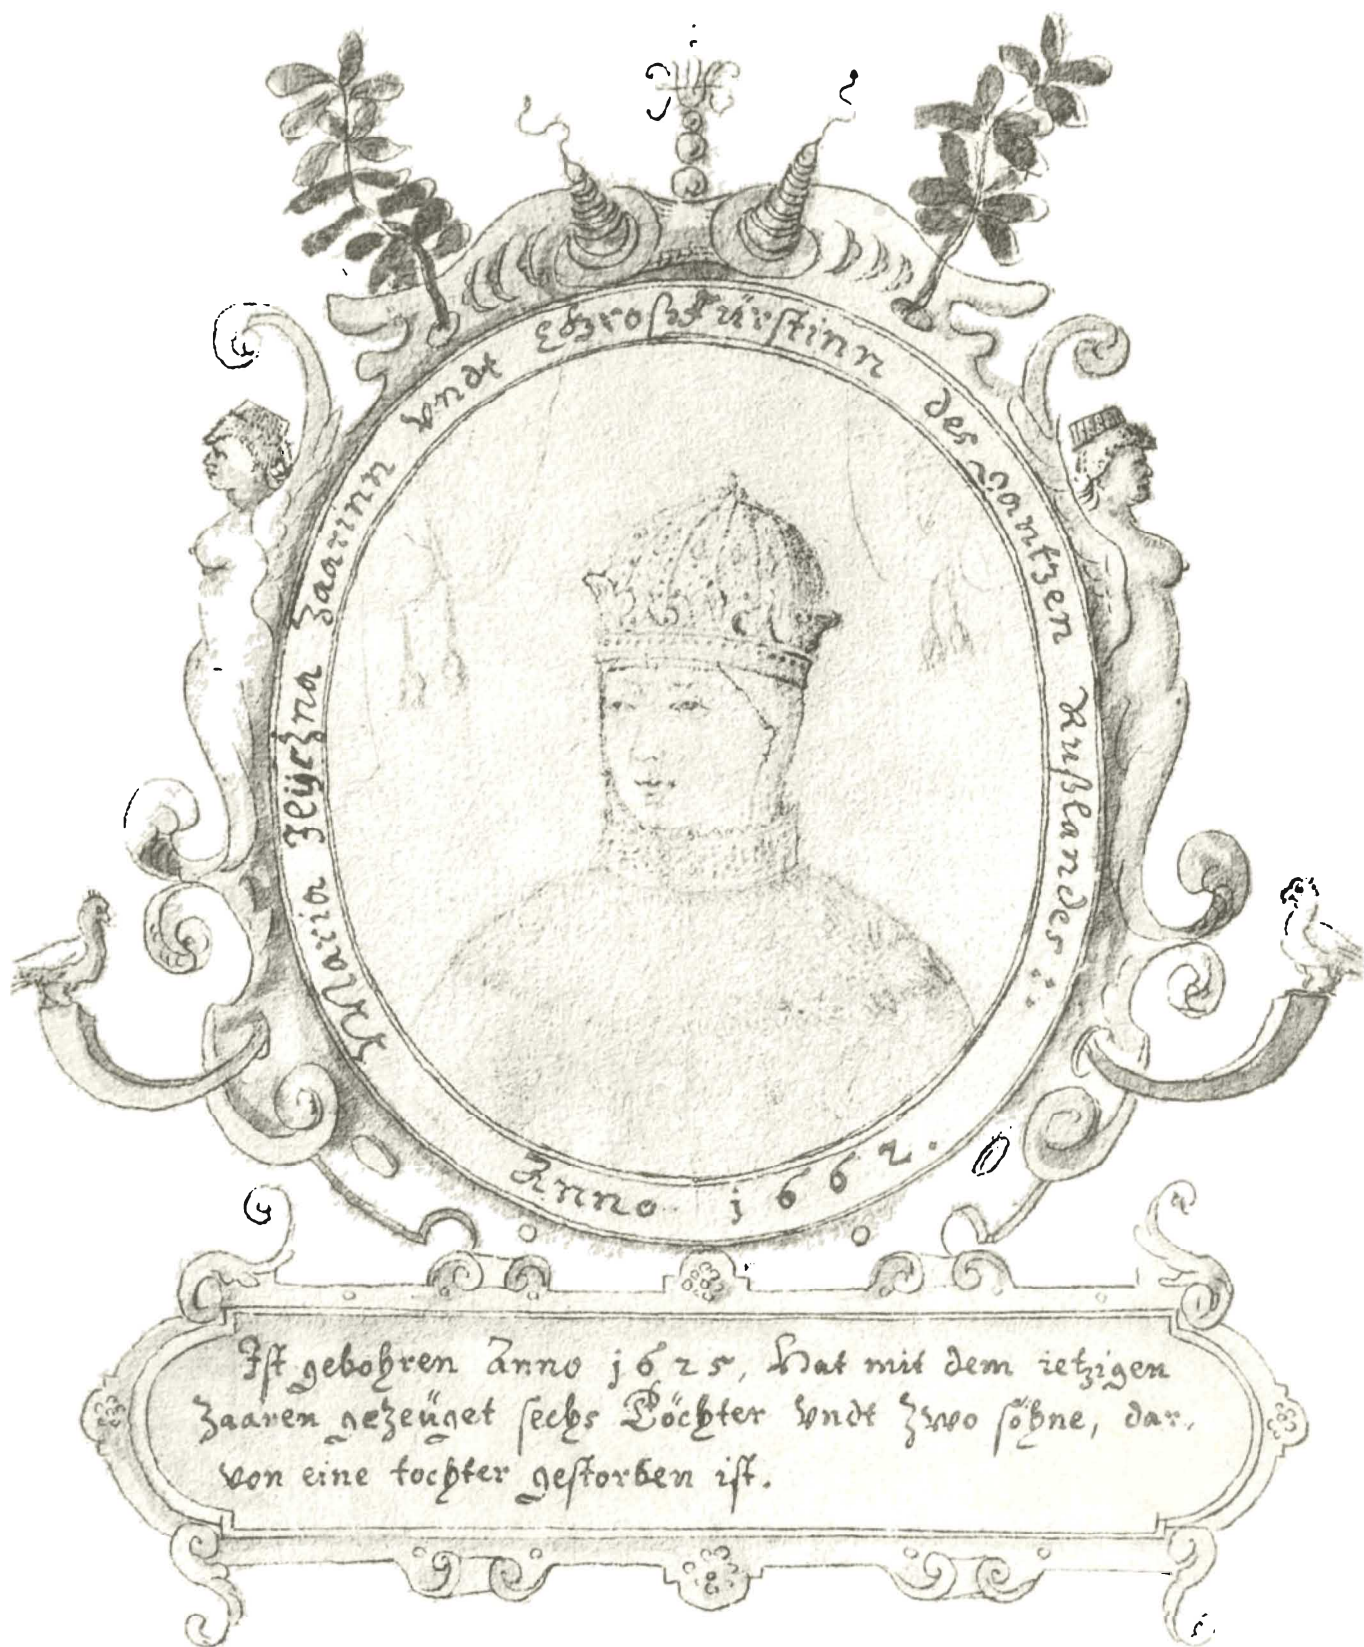 Maria Ilijczna Zaarinn vndt GroßFürstinn des gantzen Rußlandes
Anno 1662.
Ist gebohren Anno 1625, Hat mit dem ietzigen
Zaaren gezeüget sechs Töchter vndt zwo söhne, dar,
von eine tochter gestorben ist.